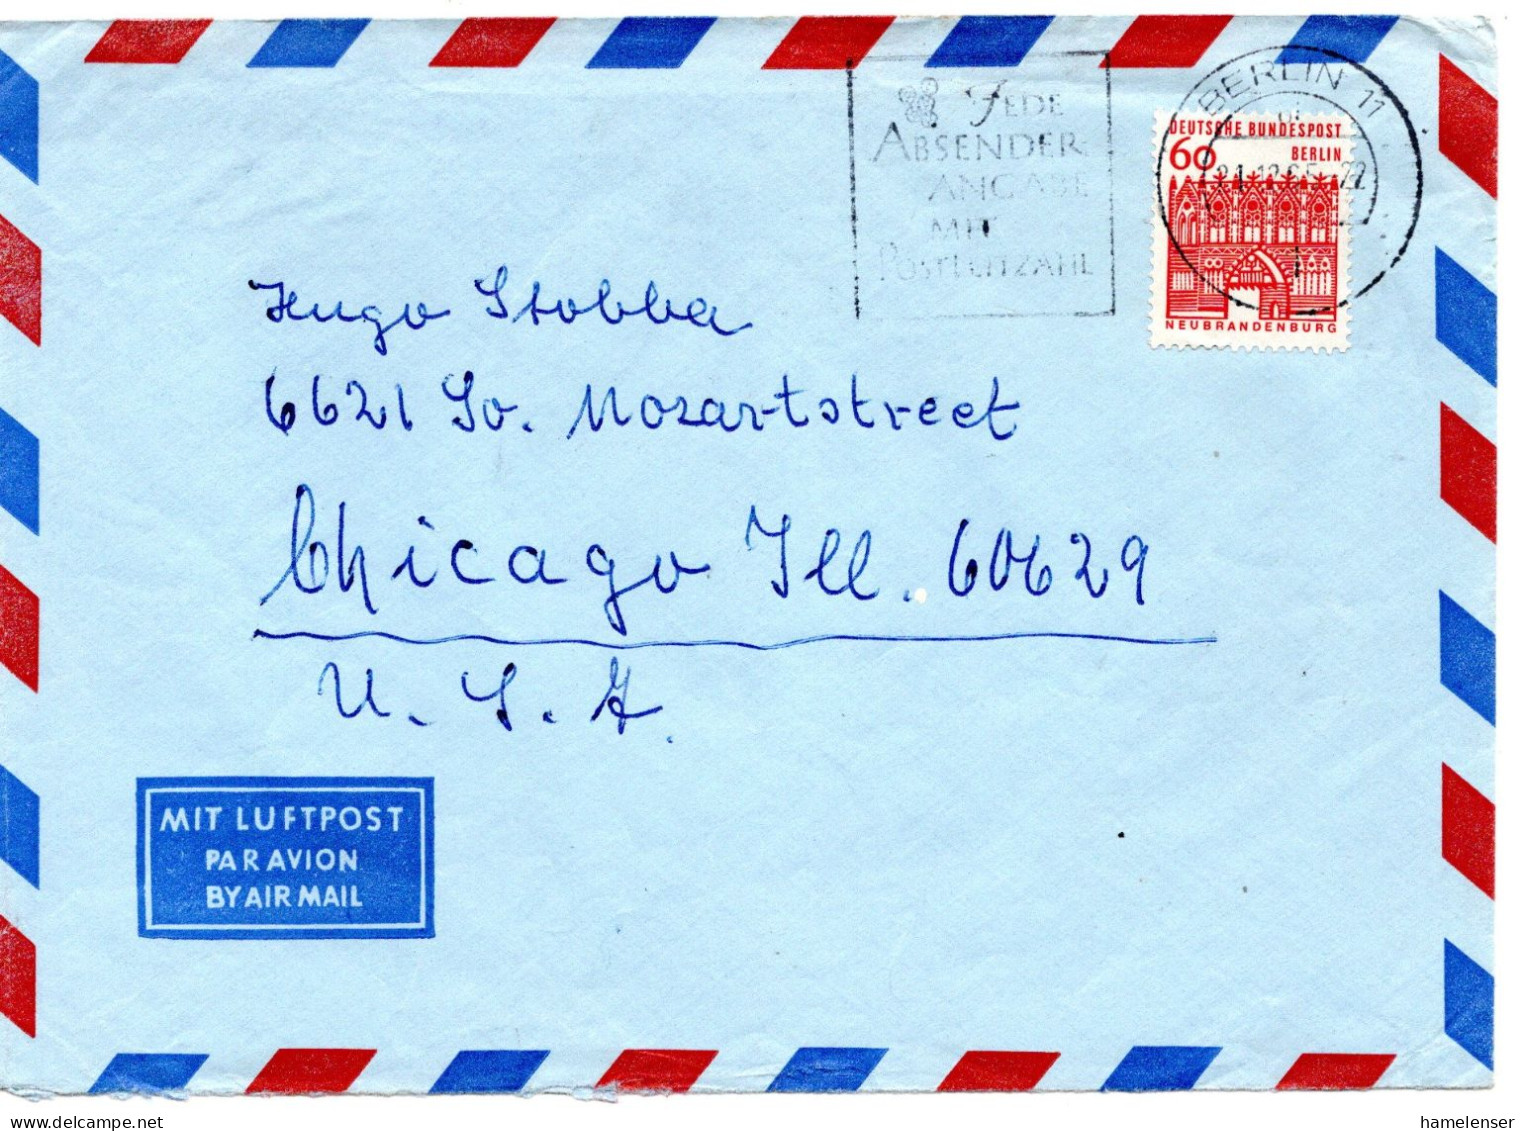 JEDE
ABSENDER-
ANGABE
MIT
POSTLEITZAHL
BERLIN 11
DEUTSCHE BUNDESPOST
60 BERLIN
NEUBRANDENBURG
Hugo Stobba
6621 So. Mozartstreet
Chicago Ill. 60629
U. S. A.
MIT LUFTPOST
PAR AVION
BY AIR MAIL
hamelenser